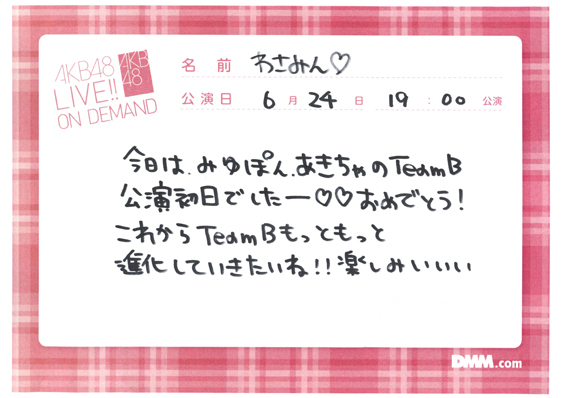 AKB48
LIVE!!
ON DEMAND
AKB
48
名前 わさみん♡
公演日 6月24日 19:00公演
今日は、みゆぽん、あきちゃのTeamB
公演初日でしたー♡♡おめでとう!
これからTeamBもっともっと
進化していきたいね!!楽しみいいい
DMM.com